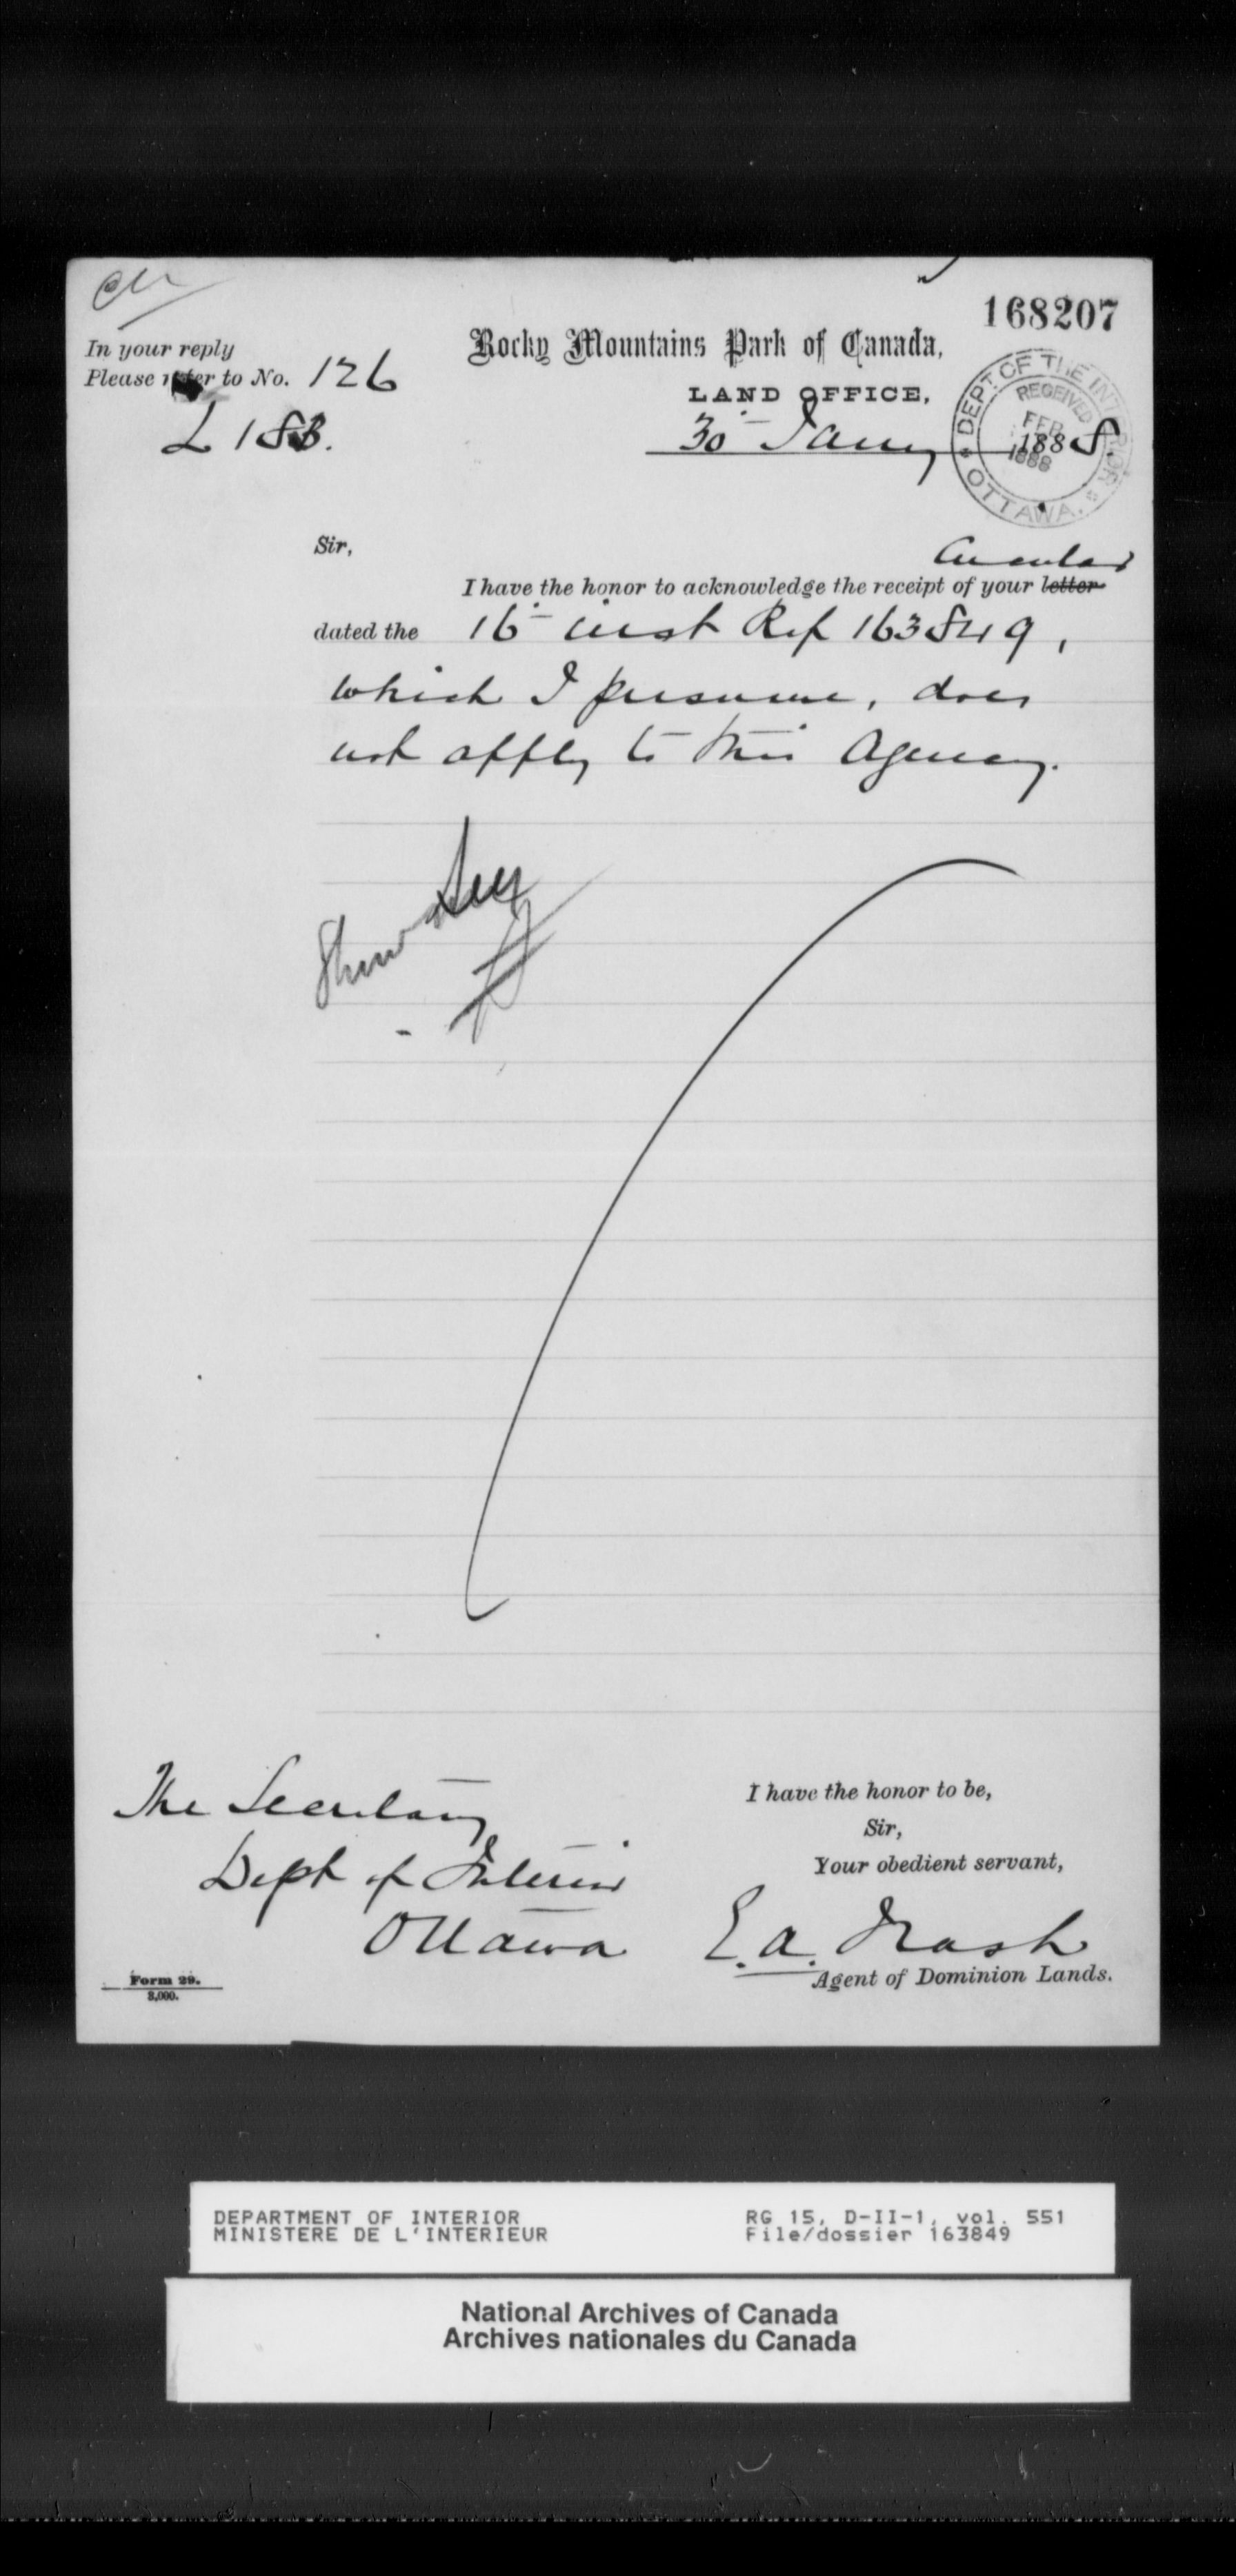 168207
In your reply
Please refer to No. 126
L 183.
Rocky Mountains Park of Canada,
LAND OFFICE,
30 Jany 1888.
DEPT. OF THE INTERIOR
RECEIVED
FEB
1888
OTTAWA.
Sir,
Circular
I have the honor to acknowledge the receipt of your letter
dated the 16 inst Ref 163849,
which I presume, does
not apply to this Agency.
Show
The Secretary
Dept of Interior
Ottawa
I have the honor to be,
Sir,
Your obedient servant,
E. A. Nash
Agent of Dominion Lands.
Form 29.
3,000.
DEPARTMENT OF INTERIOR
MINISTERE DE L'INTERIEUR
RG 15, D-II-1, vol. 551
File/dossier 163849
National Archives of Canada
Archives nationales du Canada